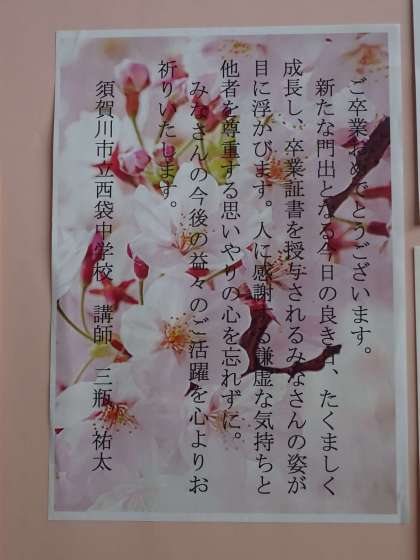 ご卒業おめでとうございます。
新たな門出となる今日の良き日、たくましく
成長し、卒業証書を授与されるみなさんの姿が
目に浮かびます。人に感謝する謙虚な気持ちと
他者を尊重する思いやりの心を忘れずに。
みなさんの今後の益々のご活躍を心よりお
祈りいたします。
須賀川市立西袋中学校　講師　三瓶　祐太